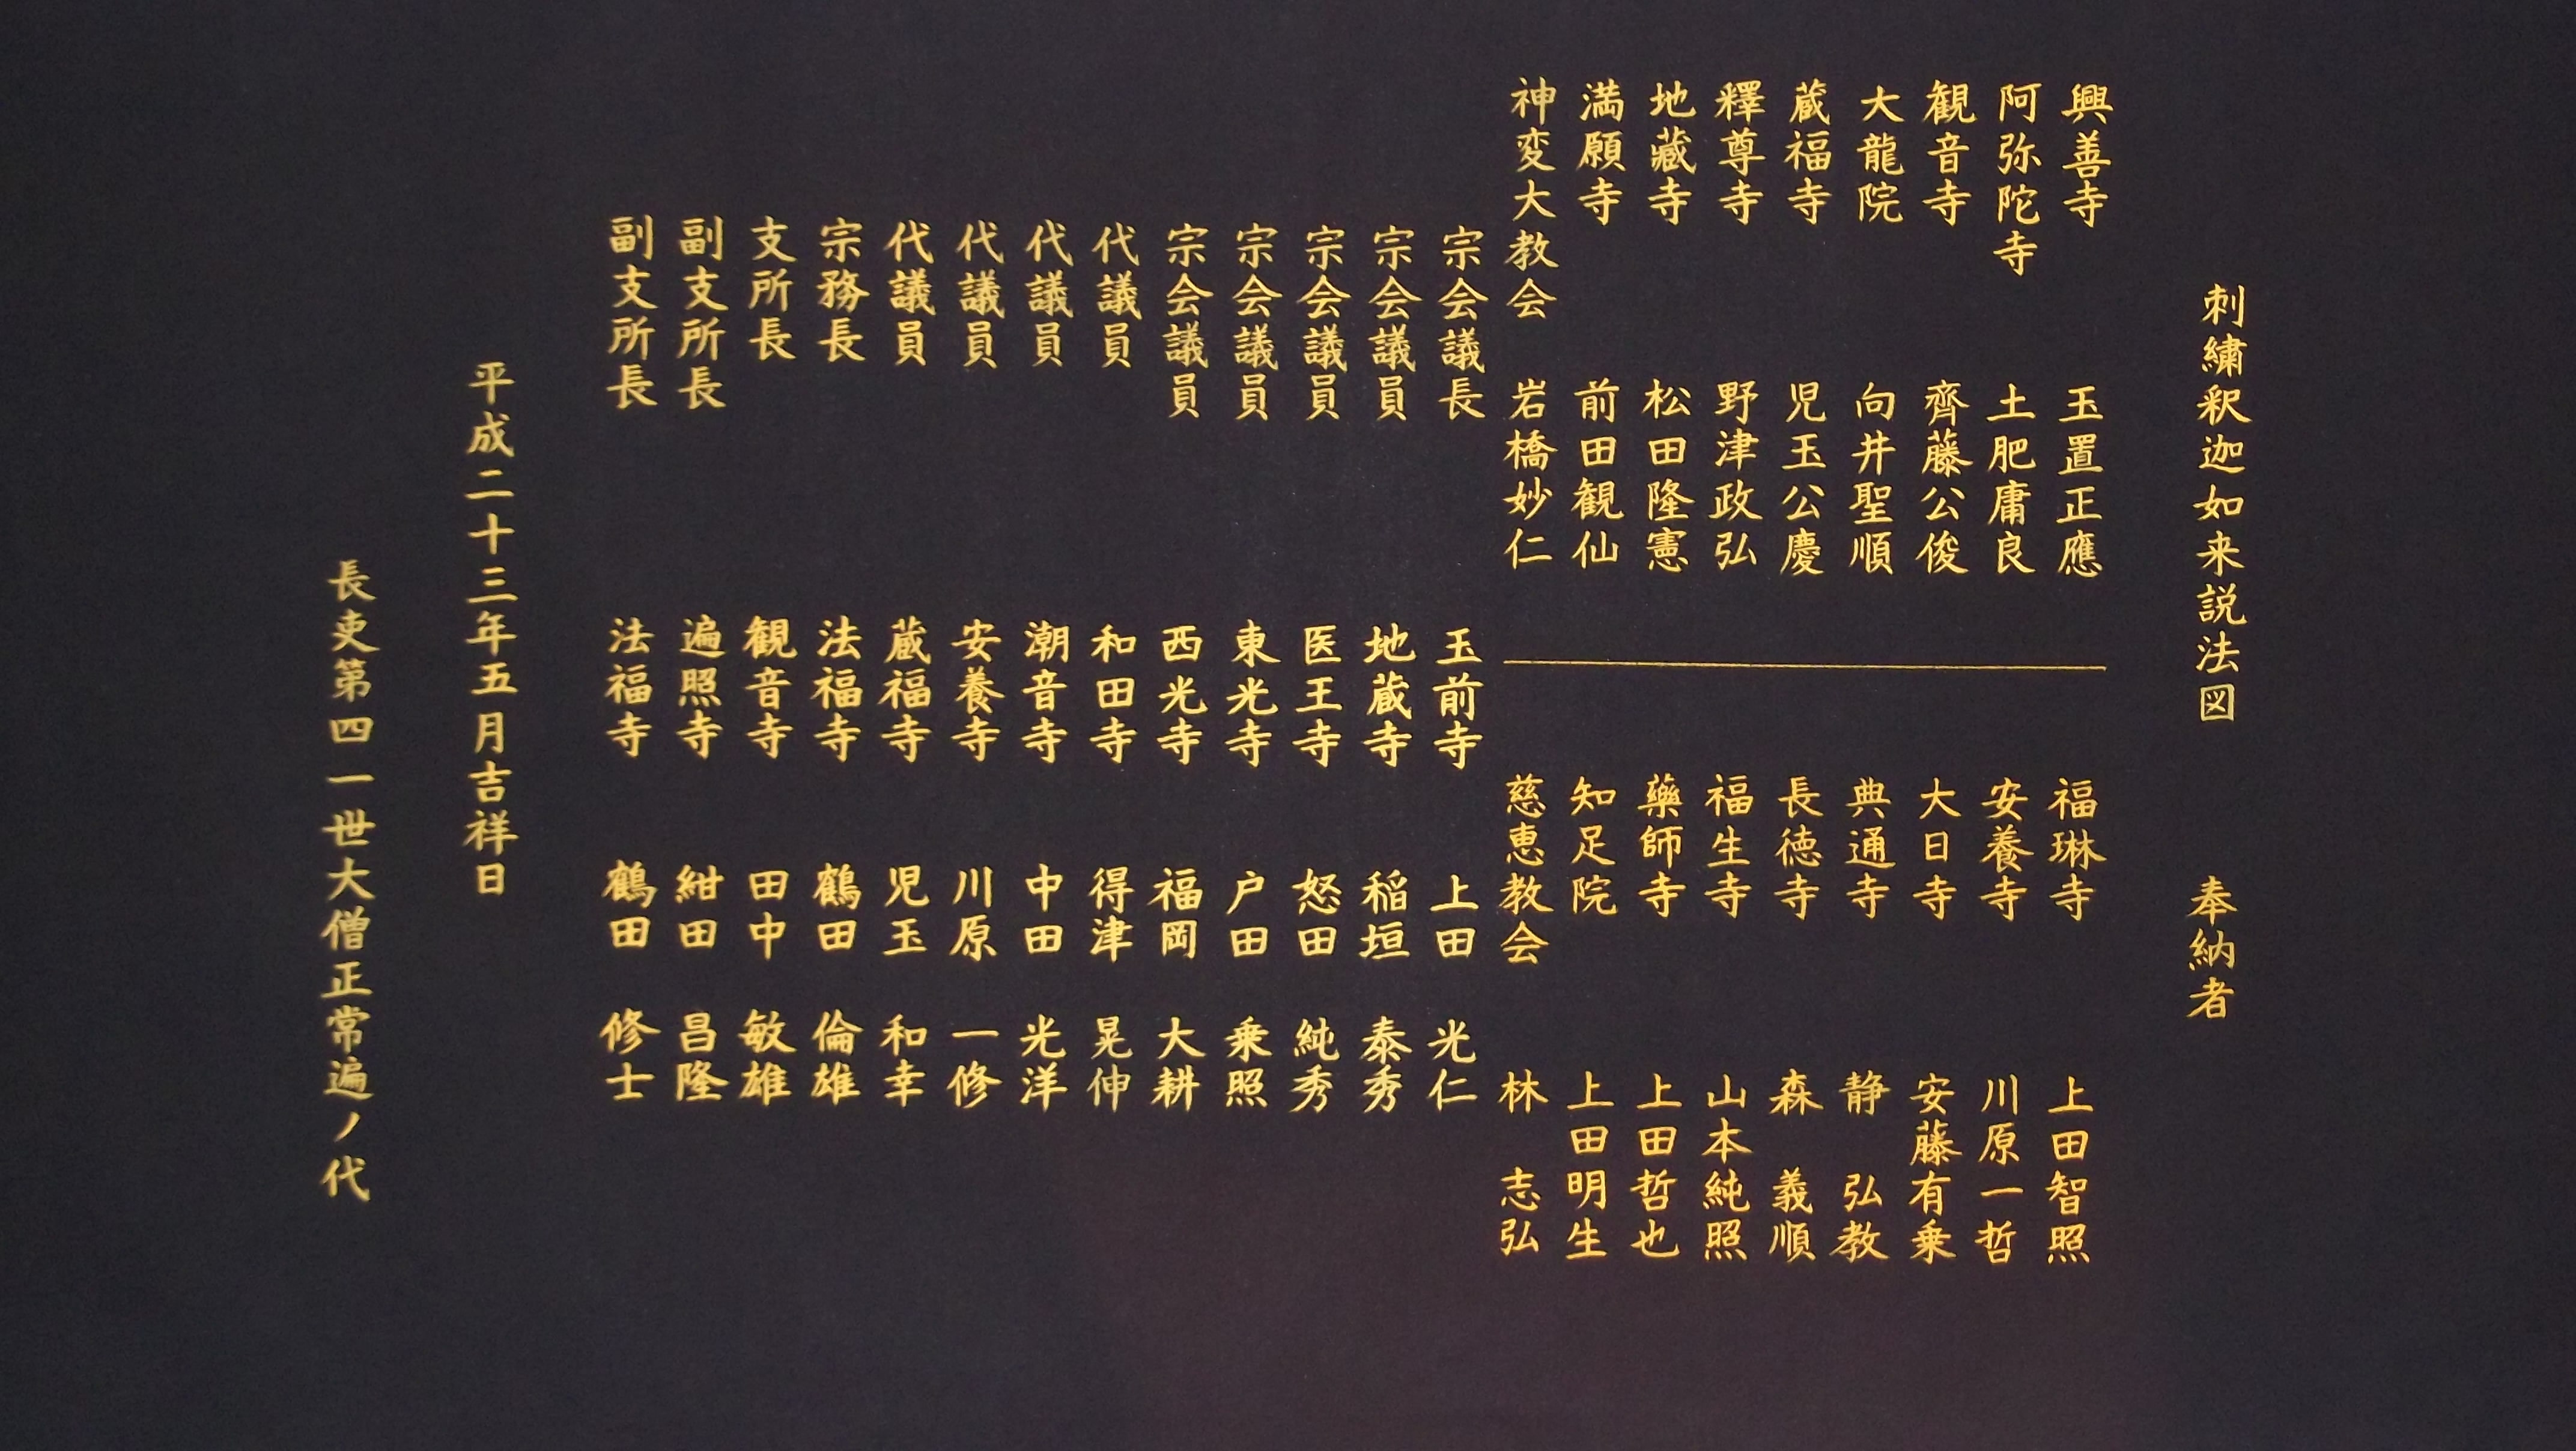 刺繍釈迦如来説法図　奉納者
興善寺　玉置正應
阿弥陀寺　土肥庸良
観音寺　齊藤公俊
大龍院　向井聖順
蔵福寺　児玉公慶
釋尊寺　野津政弘
地蔵寺　松田隆憲
満願寺　前田観仙
神変大教会　岩橋妙仁
福琳寺　上田智照
安養寺　川原一哲
大日寺　安藤有乗
典通寺　静　弘教
長徳寺　森　義順
福生寺　山本純照
藥師寺　上田哲也
知足院　上田明生
慈恵教会　林　志弘
宗会議長　玉前寺　上田　光仁
宗会議員　地蔵寺　稲垣　泰秀
宗会議員　医王寺　怒田　純秀
宗会議員　東光寺　戸田　乗照
宗会議員　西光寺　福岡　大耕
代議員　和田寺　得津　晃伸
代議員　潮音寺　中田　光洋
代議員　安養寺　川原　一修
代議員　蔵福寺　児玉　和幸
宗務長　法福寺　鶴田　倫雄
支所長　観音寺　田中　敏雄
副支所長　遍照寺　紺田　昌隆
副支所長　法福寺　鶴田　修士
平成二十三年五月吉祥日
長吏第四一世大僧正常遍ノ代